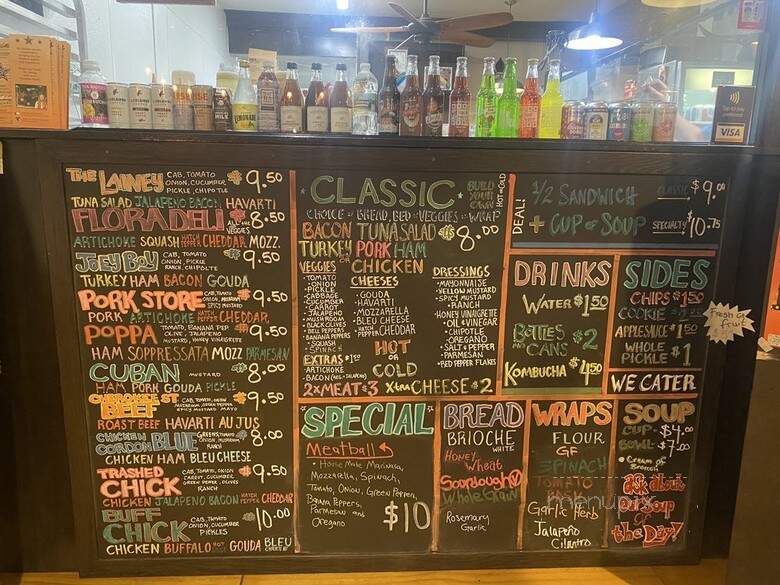 THE LAINEY CAB, TOMATO ONION, CUCUMBER PICKLE, CHIPOTLE $9.50
TUNA SALAD JALAPENO BACON HAVARTI
FLORADELI ALL THE VEGGIES $8.50
ARTICHOKE SQUASH HATCH PEPPER CHEDDAR MOZZ.
JOEY BOY CAB, TOMATO ONION, PICKLE RANCH, CHIPOTLE $9.50
TURKEY HAM BACON GOUDA
PORK STORE $9.50
PORK ARTICHOKE HATCH PEPPER CHEDDAR
POPPA TOMATO, BANANA PEP. OLIVE, JALAPENO MUSTARD, HONEY VINEGRETTE $9.50
HAM SOPPRESSATA MOZZ PARMESAN
CUBAN MUSTARD $8.00
HAM PORK GOUDA PICKLE
CHEROKEE ST. BEEF $9.50
ROAST BEEF HAVARTI AU JUS
CHICKEN CORDON BLUE $8.00
CHICKEN HAM BLEU CHEESE
TRASHED CHICK CAB, TOMATO, ONION CARROT, CUCUMBER GREEN PEPPER, OLIVES RANCH $9.50
CHICKEN JALAPENO BACON HATCH PEPPER CHEDDAR
BUFF CHICK CAB, TOMATO, ONION, CUCUMBER PICKLES $10.00
CHICKEN BUFFALO HOT GOUDA BLEU CHEESE
CLASSIC BUILD YOUR OWN HOT OR COLD
CHOICE OF BREAD, BED OF VEGGIES OR WRAP
BACON TUNA SALAD
TURKEY PORK HAM
OR CHICKEN
$8.00
VEGGIES
• TOMATO
• ONION
• PICKLE
• CABBAGE
• CUCUMBER
• CARROT
• JALAPENO
• MUSHROOM
• BLACK OLIVES
• BELL PEPPERS
• BANANA PEPPERS
• SQUASH
• SPINACH
EXTRAS $1.50
• ARTICHOKE
• BACON (REG • JALAPENO)
CHEESES
• GOUDA
• HAVARTI
• MOZZARELLA
• BLEU CHEESE
• HATCH PEPPER CHEDDAR
HOT
OR
COLD
DRESSINGS
• MAYONNAISE
• YELLOW MUSTARD
• SPICY MUSTARD
• RANCH
HONEY VINAIGRETTE
• OIL & VINEGAR
• CHIPOTLE
• OREGANO
• SALT & PEPPER
• PARMESAN
• RED PEPPER FLAKES
2X MEAT $3 XTRA CHEESE $2
DEAL!
1/2 SANDWICH
+ CUP OF SOUP
CLASSIC $9.00
SPECIALTY $10.75
DRINKS
WATER $1.50
BOTTLES AND CANS $2
KOMBUCHA $4.50
SIDES
CHIPS $1.50
COOKIE
APPLESAUCE $1.50
WHOLE PICKLE $1
Fresh Cut fruit
WE CATER
"SPECIAL"
Meatball
• Home Made Marinara,
Mozzarella, Spinach,
Tomato, Onion, Green Pepper,
Banana Peppers,
Parmesan and
Oregano
$10
BREAD
BRIOCHE
WHITE
HONEY Wheat
Sourdough
Whole Grain
Rosemary Garlic
WRAPS
FLOUR
GF
SPINACH
TOMATO
Garlic Herb
Jalapeño Cilantro
SOUP
CUP - $4.00
BOWL - $7.00
• Cream of Broccoli
ask about
our Soup
of
the Day!
menupix
VISA
LEMONADE